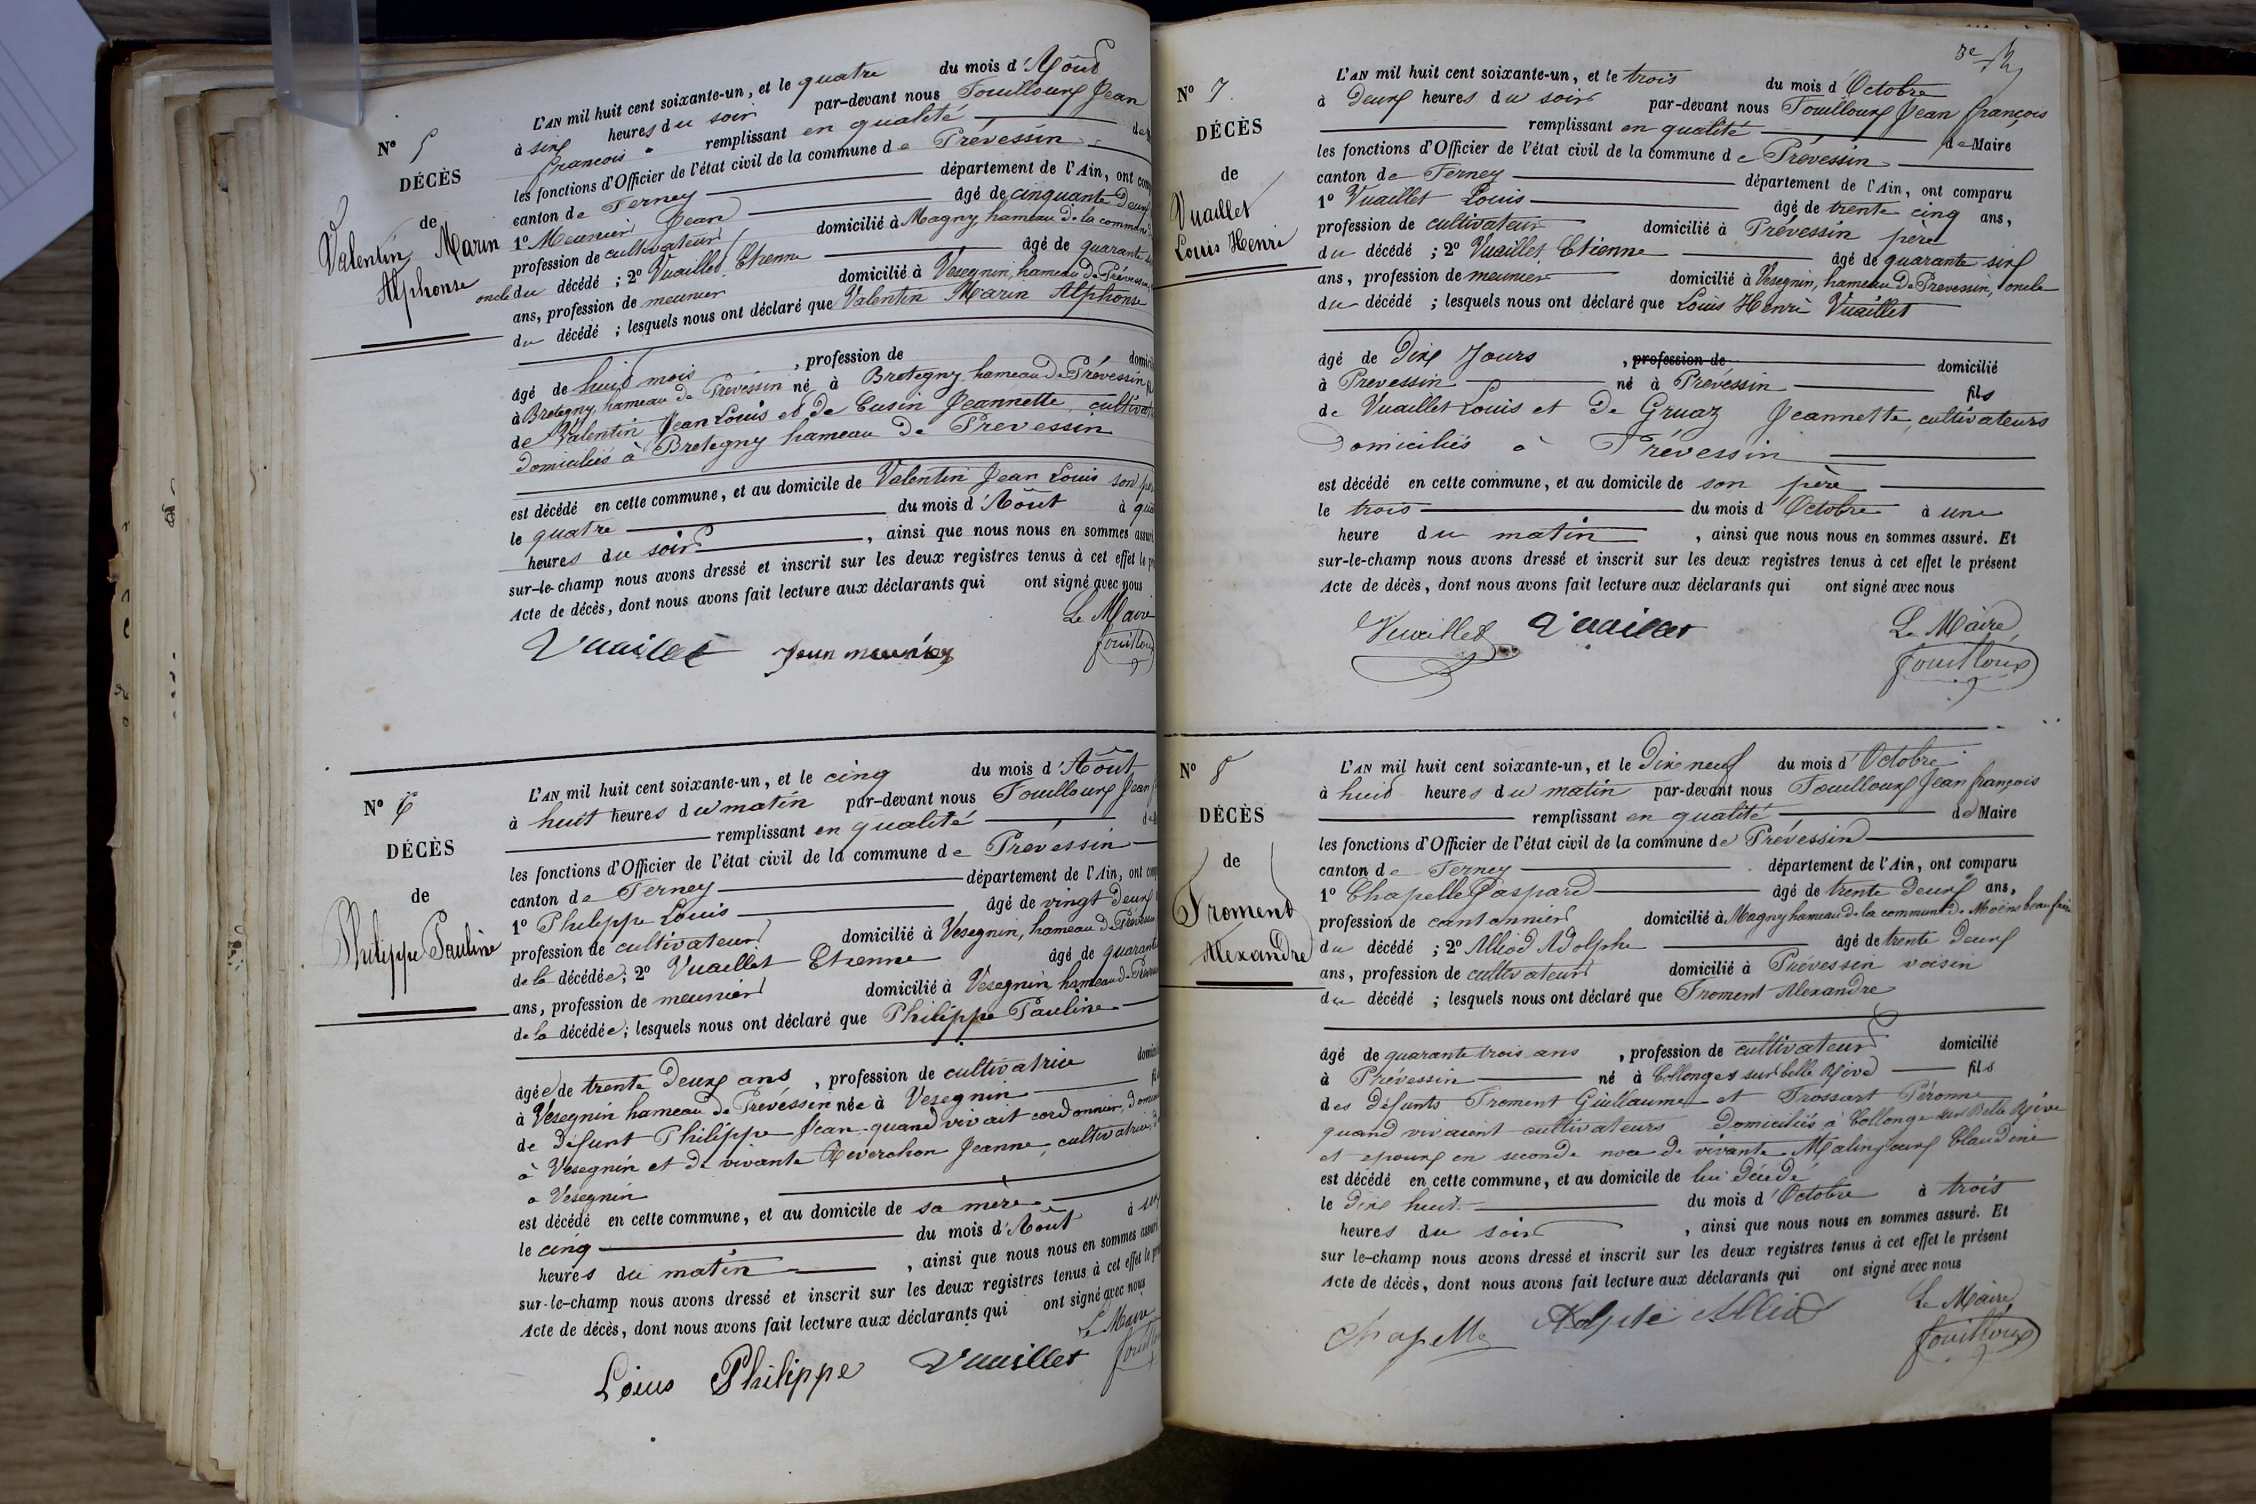 N° 5
DÉCÈS
de
Valentin Marin
Alphonse
L'AN mil huit cent soixante-un, et le quatre du mois d'Aoüt
à six heures du soir par-devant nous Fouilloux Jean
françois remplissant en qualité de
les fonctions d'Officier de l'état civil de la commune de Prévessin
canton de Ferney département de l'Ain, ont
1° Meunier Jean âgé de cinquante Deux
profession de cultivateur domicilié à Magny, hameau de la commune
oncle du décédé ; 2° Vuaillet Etienne âgé de quarante
ans, profession de meunier domicilié à Vesegnin, hameau de Prévessin,
du décédé ; lesquels nous ont déclaré que Valentin Marin Alphonse
âgé de huit mois , profession de
à Bretegny, hameau de Prevessin né à Bretegny hameau de Prévessin
de Valentin Jean Louis et de Cusin Jeannette,
domiciliés à Bretegny hameau de Prevessin
est décédé en cette commune, et au domicile de Valentin Jean Louis son
le quatre du mois d'Aoüt à
heures du soir , ainsi que nous nous en sommes
sur-le-champ nous avons dressé et inscrit sur les deux registres tenus à cet effet le
Acte de décès, dont nous avons fait lecture aux déclarants qui ont signé avec nous
Le Maire
Vuaillet Jean meunier
N° 6
DÉCÈS
de
Philippe Pauline
L'AN mil huit cent soixante-un, et le cinq du mois d'Aoüt
à huit heures du matin par-devant nous Fouilloux Jean
remplissant en qualité
les fonctions d'Officier de l'état civil de la commune de Prévessin
canton de Ferney département de l'Ain, ont
1° Philippe Louis âgé de vingt Deux
profession de cultivateur domicilié à Vesegnin, hameau de Prévessin
de la décédée ; 2° Vuaillet Etienne âgé de quarante
ans, profession de meunier domicilié à Vesegnin hameau de
de la décédée ; lesquels nous ont déclaré que Philippe Pauline
âgée de trente Deux ans , profession de cultivatrice
à Vesegnin hameau de Prévessin née à Vesegnin
de défunt Philippe Jean quand vivait cordonnier,
à Vesegnin et de vivante Reverchon Jeanne, cultivatrice,
a Vesegnin
est décédé en cette commune, et au domicile de sa mère
le cinq du mois d'Aoüt à
heures du matin , ainsi que nous nous en sommes
sur-le-champ nous avons dressé et inscrit sur les deux registres tenus à cet effet le
Acte de décès, dont nous avons fait lecture aux déclarants qui ont signé avec nous
Le Maire
Loius Philippe Vuaillet
N° 7.
DÉCÈS
de
Vuaillet
Louis Henri
L'AN mil huit cent soixante-un, et le trois du mois d'Octobre
à Deux heures du soir par-devant nous Fouilloux Jean françois
remplissant en qualité de Maire
les fonctions d'Officier de l'état civil de la commune de Prévessin
canton de Ferney département de l'Ain, ont comparu
1° Vuaillet Louis âgé de trente cinq ans,
profession de cultivateur domicilié à Prévessin père
du décédé ; 2° Vuaillet Etienne âgé de quarante six
ans, profession de meunier domicilié à Vesegnin, hameau De Prevessin, oncle
du décédé ; lesquels nous ont déclaré que Louis Henri Vuaillet
âgé de Dix Jours , profession de domicilié
à Prevessin né à Prévessin fils
de Vuaillet Louis et De Gruaz Jeannette, cultivateurs
Domiciliés à Prévessin
est décédé en cette commune, et au domicile de son père
le trois du mois d'Octobre à une
heure du matin , ainsi que nous nous en sommes assuré. Et
sur-le-champ nous avons dressé et inscrit sur les deux registres tenus à cet effet le présent
Acte de décès, dont nous avons fait lecture aux déclarants qui ont signé avec nous
Vuaillet Vuaillet Le Maire
fouilloux
N° 8
DÉCÈS
de
Froment
Alexandre
L'AN mil huit cent soixante-un, et le Dix neuf du mois d'Octobre
à huit heures du matin par-devant nous Fouilloux Jean françois
remplissant en qualité de Maire
les fonctions d'Officier de l'état civil de la commune de Prévessin
canton de Ferney département de l'Ain, ont comparu
1° Chapelle Gaspard âgé de trente Deux ans,
profession de cantonnier domicilié à Magny hameau de la commune de Moëns beau frère
du décédé ; 2° Alliod Adolphe âgé de trente Deux
ans, profession de cultivateur domicilié à Prévessin voisin
du décédé ; lesquels nous ont déclaré que Froment Alexandre
âgé de quarante trois ans , profession de cultivateur domicilié
à Prévessin né à Collonges sur belle Rive fils
des défunts Froment Guillaume et Frossart Péronne
quand vivaient cultivateurs Domiciliés à Collonge sur Belle Rive
et epoux en seconde noce de vivante Malinjoux Claudine
est décédé en cette commune, et au domicile de lui décédé
le dix huit du mois d'Octobre à trois
heures du soir , ainsi que nous nous en sommes assuré. Et
sur le-champ nous avons dressé et inscrit sur les deux registres tenus à cet effet le présent
Acte de décès, dont nous avons fait lecture aux déclarants qui ont signé avec nous
Le Maire
Chapelle Adolphe Alliod fouilloux